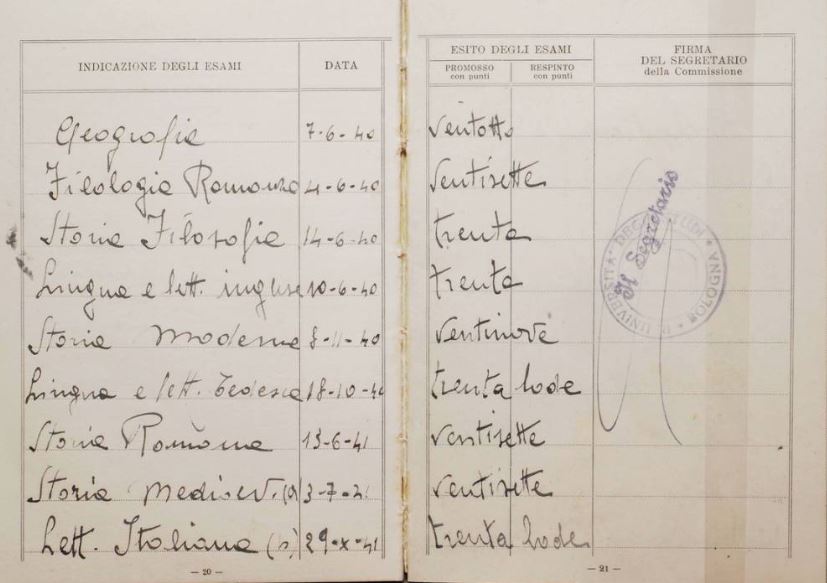 INDICAZIONE DEGLI ESAMI
DATA
Geografia 7-6-40
Filologia Romanza 4-6-40
Storia Filosofia 14-6-40
Lingua e lett. inglese 10-6-40
Storia Moderna 8-11-40
Lingua e lett. Tedesca 18-10-40
Storia Romana 13-6-41
Storia Medioev. 3-7-41
Lett. Italiana 29-X-41
— 20 —
ESITO DEGLI ESAMI
PROMOSSO
con punti
RESPINTO
con punti
FIRMA
DEL SEGRETARIO
della Commissione
ventotto
ventisette
trenta
trenta
ventinove
trenta lode
ventisette
ventisette
trenta lode
Il Segretario
UNIVERSITA' DEGLI STUDI * BOLOGNA *
— 21 —